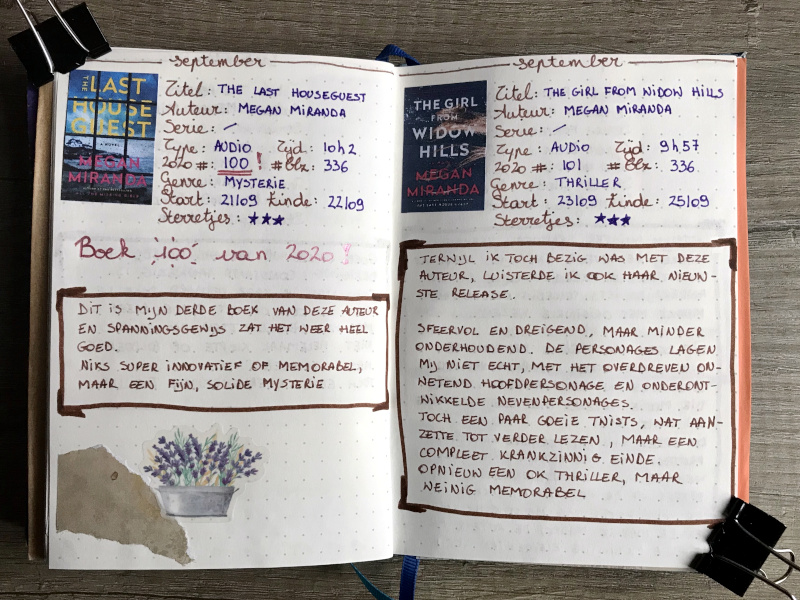 september
THE LAST HOUSE GUEST
A NOVEL
MEGAN MIRANDA
Titel: THE LAST HOUSEGUEST
Auteur: MEGAN MIRANDA
Serie: /
Type: AUDIO Tijd: 10h2
2020 #: 100 ! #Blz: 336
Genre: MYSTERIE
Start: 21/09 Einde: 22/09
Sterretjes: ★★★
Boek '100' van 2020 !
DIT IS MIJN DERDE BOEK VAN DEZE AUTEUR
EN SPANNINGSGEWIJS ZAT HET WEER HEEL
GOED.
NIKS SUPER INNOVATIEF OF MEMORABEL,
MAAR EEN FIJN, SOLIDE MYSTERIE
september
THE GIRL
FROM
WIDOW
HILLS
MEGAN
MIRANDA
Titel: THE GIRL FROM WIDOW HILLS
Auteur: MEGAN MIRANDA
Serie: /
Type: AUDIO Tijd: 9h57
2020 #: 101 #Blz: 336
Genre: THRILLER
Start: 23/09 Einde: 25/09
Sterretjes: ★★★
TERWIJL IK TOCH BEZIG WAS MET DEZE
AUTEUR, LUISTERDE IK OOK HAAR NIEUW-
STE RELEASE.
SFEERVOL EN DREIGEND, MAAR MINDER
ONDERHOUDEND. DE PERSONAGES LAGEN
MIJ NIET ECHT, MET HET OVERDREVEN ON-
WETEND HOOFDPERSONAGE EN ONDERONT-
WIKKELDE NEVENPERSONAGES.
TOCH EEN PAAR GOEIE TWISTS, WAT AAN-
ZETTE TOT VERDER LEZEN, MAAR EEN
COMPLEET KRANKZINNIG EINDE.
OPNIEUW EEN OK THRILLER, MAAR
WEINIG MEMORABEL